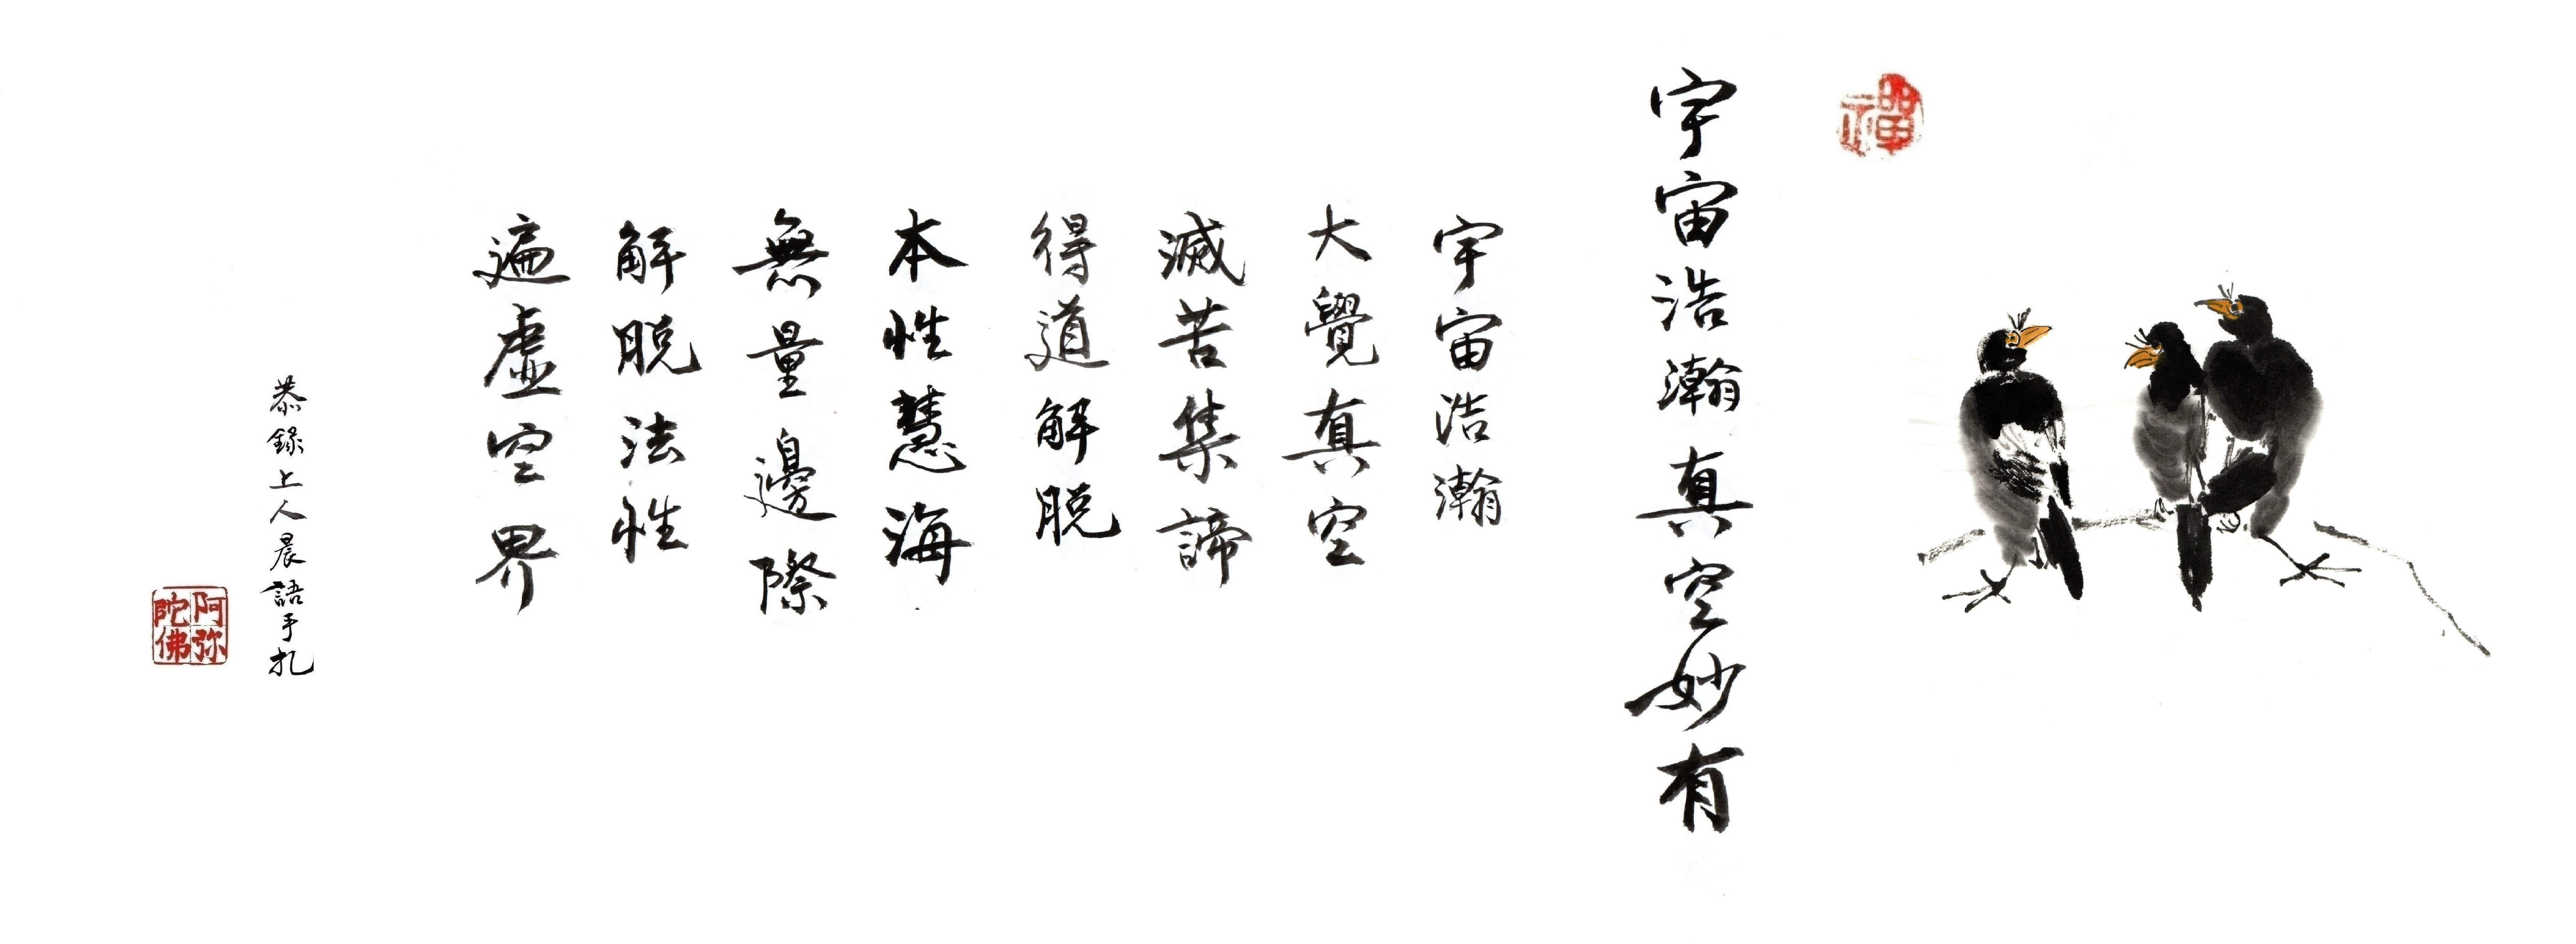 禪
宇宙浩瀚真空妙有
宇宙浩瀚
大覺真空
滅苦集諦
得道解脱
本性慧海
無量邊際
解脱法性
遍虛空界
恭錄上人晨語手札
阿弥陀佛